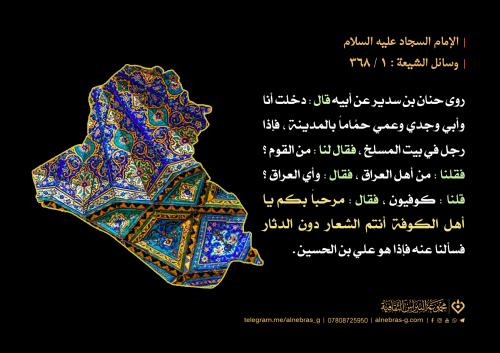 الإمام السجاد عليه السلام
وسائل الشيعة : ١ / ٣٦٨
روى حنان بن سدير عن أبيه قال : دخلت أنا
وأبي وجدي وعمي حمّاماً بالمدينة ، فإذا
رجل في بيت المسلخ ، فقال لنا : من القوم ؟
فقلنا : من أهل العراق ، فقال : وأي العراق ؟
قلنا : كوفيون ، فقال : مرحباً بكم يا
أهل الكوفة أنتم الشعار دون الدثار
فسألنا عنه فإذا هو علي بن الحسين .
مجموعة النبراس الثقافية
telegram.me/alnebras_g | 07808725950 | alnebras-g.com